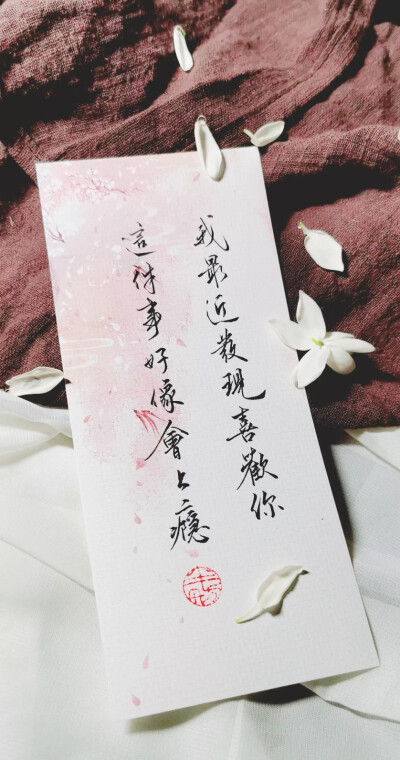 我最近發現喜歡你
這件事好像會上癮